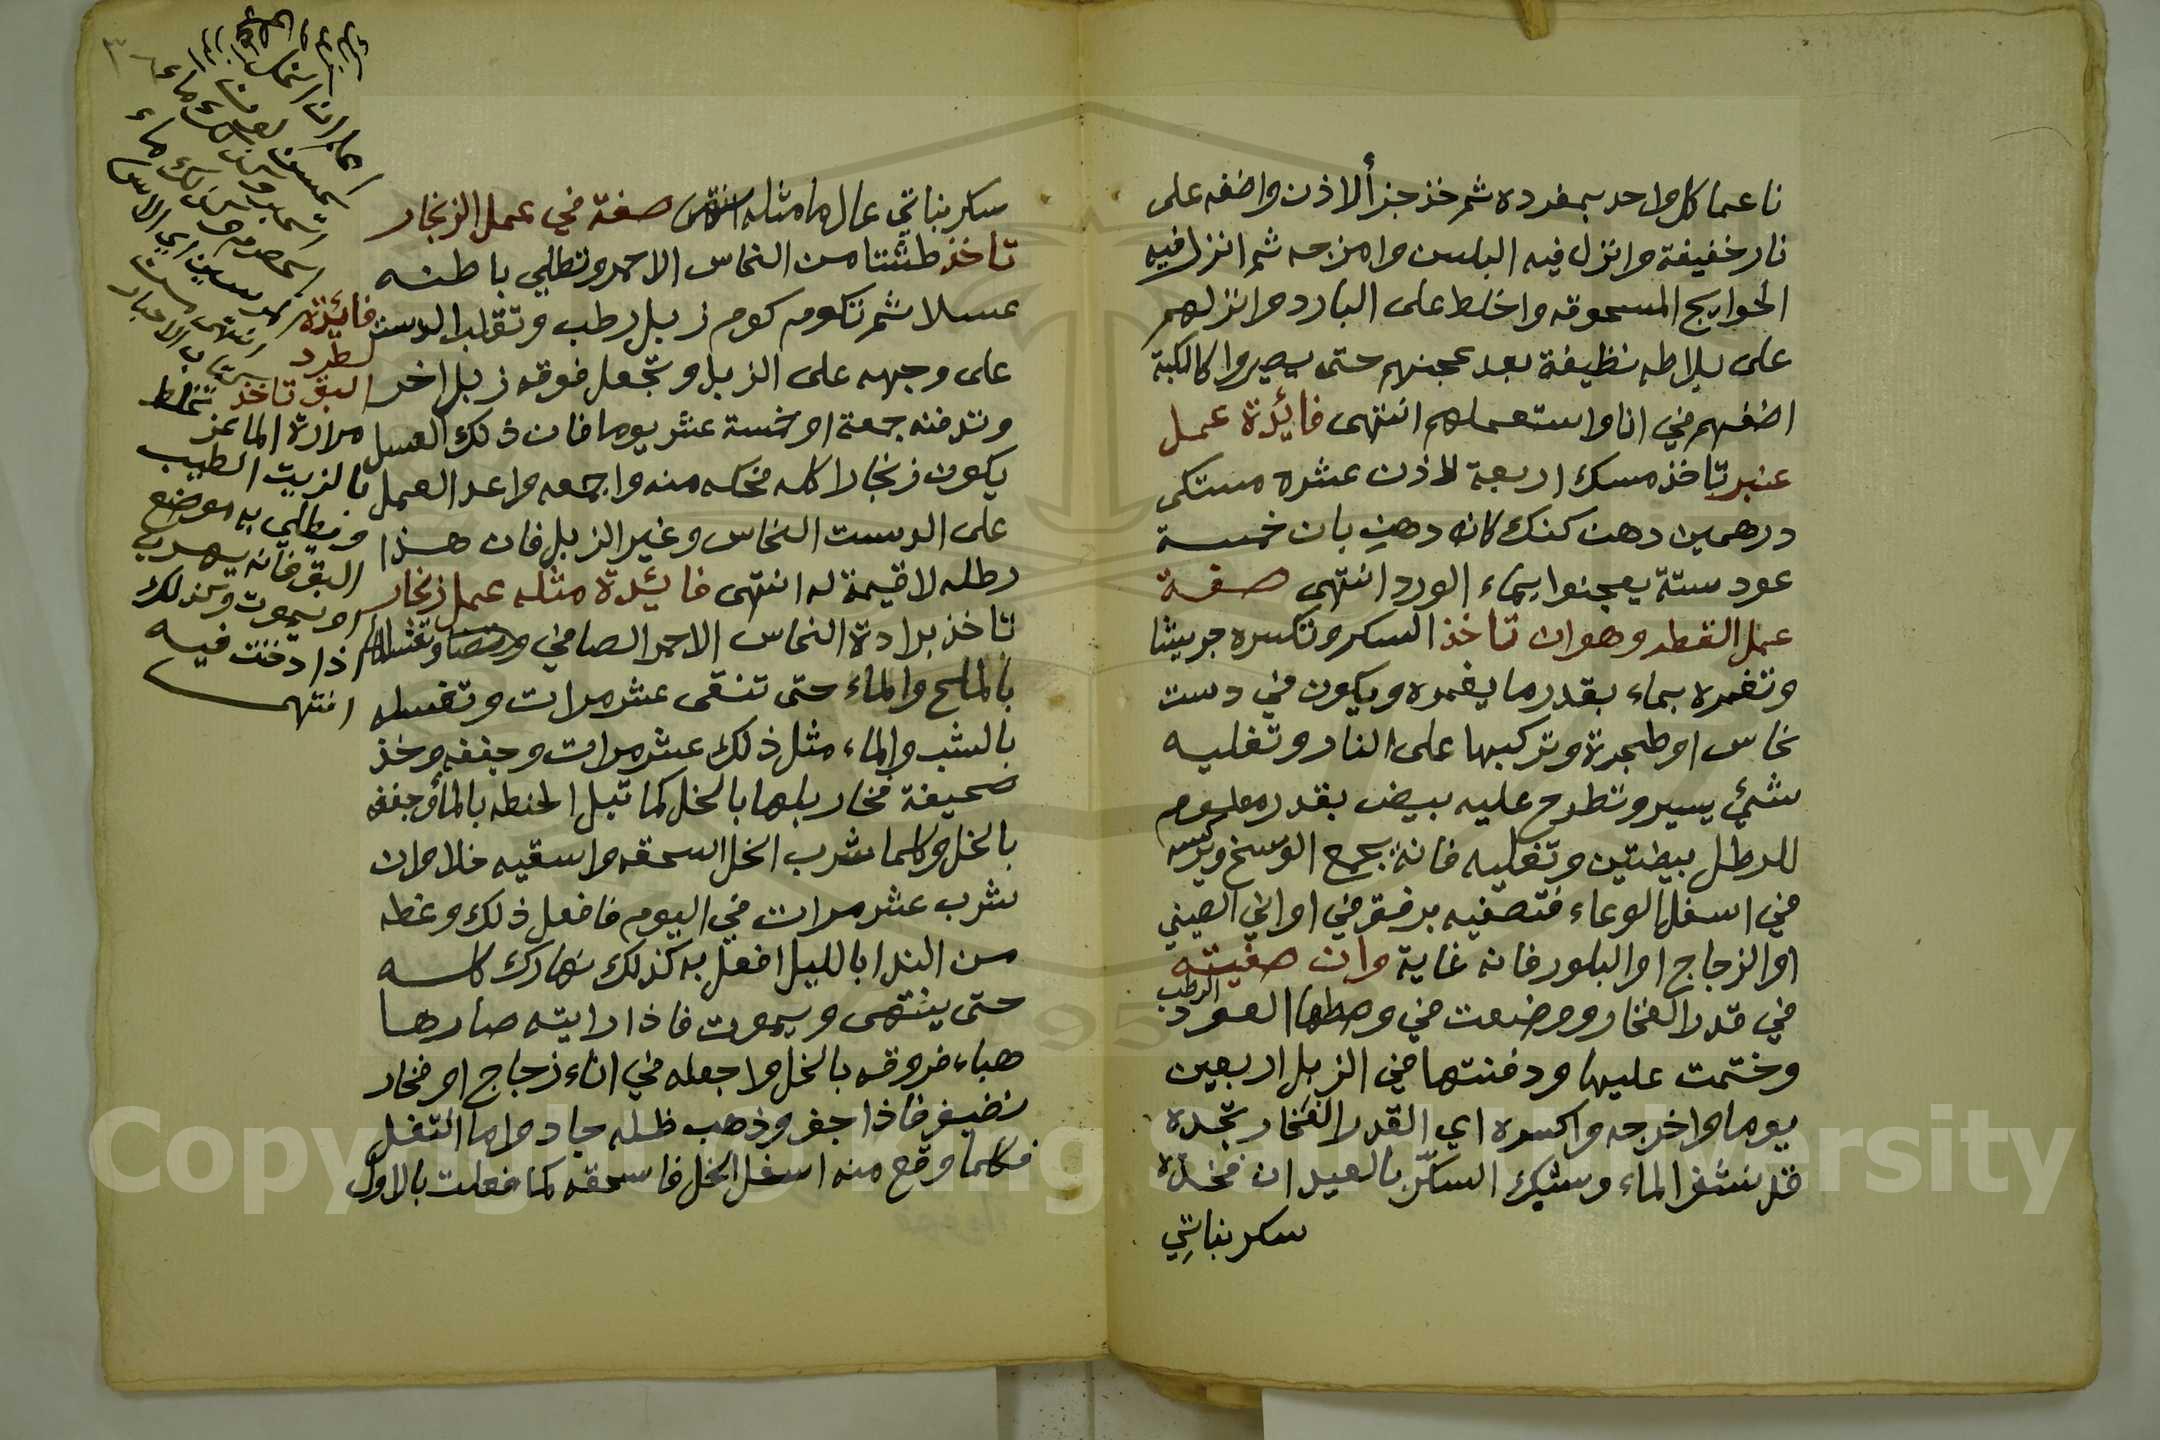 ناعما كل واحد بمفرده ثم خذ جزأ لاذن واضفه على
نار خفيفة وانزل فيه البلسن وامزجه ثم انزل فيه
الحوايج المسحوقه واخلط على البارد وانزلهم
على بلاطه نظيفة بعد عجنهم حتى يصيروا كالكبة
اضفهم في انا واستعملهم انتهى فائدة عمل
عنبر تاخذ مسك اربعة لاذن عشره مستكى
درهمين دهن كنك كانه دهن بان خمسة
عود ستة يعجنوا بماء الورد انتهى صفة
عمل القطر وهو ان تاخذ السكر وتكسره جريشا
وتغمره بماء بقدر ما يغمره ويكون في دست
نحاس او طنجرة وتركبها على النار وتغليه
شئ يسير وتطرح عليه بيض بقدر معلوم
للرطل بيضتين وتغليه فانه يجمع الوسخ ويرسه
في اسفل الوعاء فتصفيه برفق في اواني الصيني
او الزجاج او البلور فانه غاية وان صفيته
في قدر الفخار ووضعت في وسطها العود الرطب
وختمت عليها ودفنتها في الزبل اربعين
يوما واخرجه واكسره اي القدر الفخار تجده
قد نشف الماء وشبك السكر بالعيدان فخذه
سكر نباتي
سكر نباتي عال ما مثله انتهى صفة في عمل الزنجار
تاخذ طشتا من النحاس الاحمر وتطلي باطنه
عسلا ثم تكومه كوم زبل رطب وتقلب الدست
على وجهه على الزبل وتجعل فوقه زبل اخر
وتدفنه جمعة او خمسة عشر يوما فان ذلك العسل
يكون زنجارا كله فحكه منه واجمعه واعد العمل
على الدست النحاس وغير الزبل فان هذا
رطله لا قيمة له انتهى فائدة مثله عمل زنجار
تاخذ برادة النحاس الاحمر الصافي وتغسله
بالملح والماء حتى تنقى عشر مرات وتغسله
بالشب والماء مثل ذلك عشر مرات وجففه وخذ
صحيفة فخار بلها بالخل كما تبل الحنطه بالماء وجففه
بالخل وكلما شرب الخل اسحقه واسقيه خلا وان
شرب عشر مرات في اليوم فافعل ذلك وغطه
من الندا بالليل افعل به كذلك نهارك كله
حتى ينتهى ويموت فاذا رايته صارها
هباء فروقه بالخل واجعله في اناء زجاج او فخار
نضيف فاذا جف وذهب ظله جاد واما التفل
فكلما وقع منه اسفل الخل فاسحقه كما فعلت بالاول
فائدة
لطرد
البق تاخذ تخلط
مرارة الماعز
بالزيت الطيب
وتطلي به موضع
البق فانه يهرب
او يموت وكذلك
اذا دخنت فيه
انتهى
Copyright © King Saud University